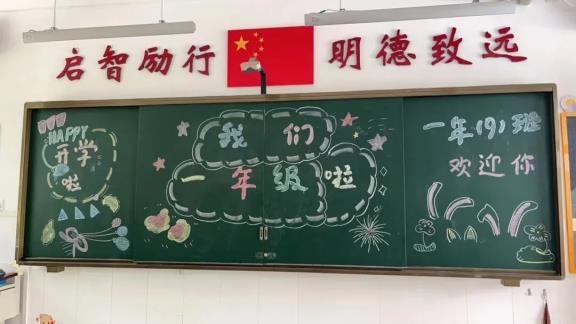 启智励行
明德致远
HAPPY
开学
啦
我们
一年级啦
一年(9)班
欢迎你